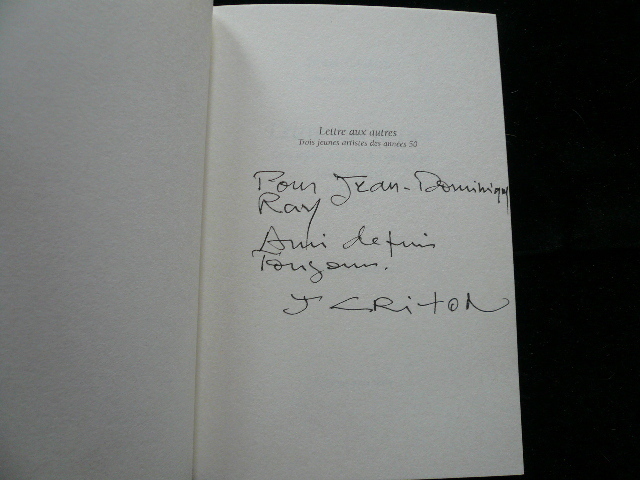 Lettre aux autres
Trois jeunes artistes des années 50
Pour Jean-Dominique
Rey
Ami depuis
Toujours.
J CRITON